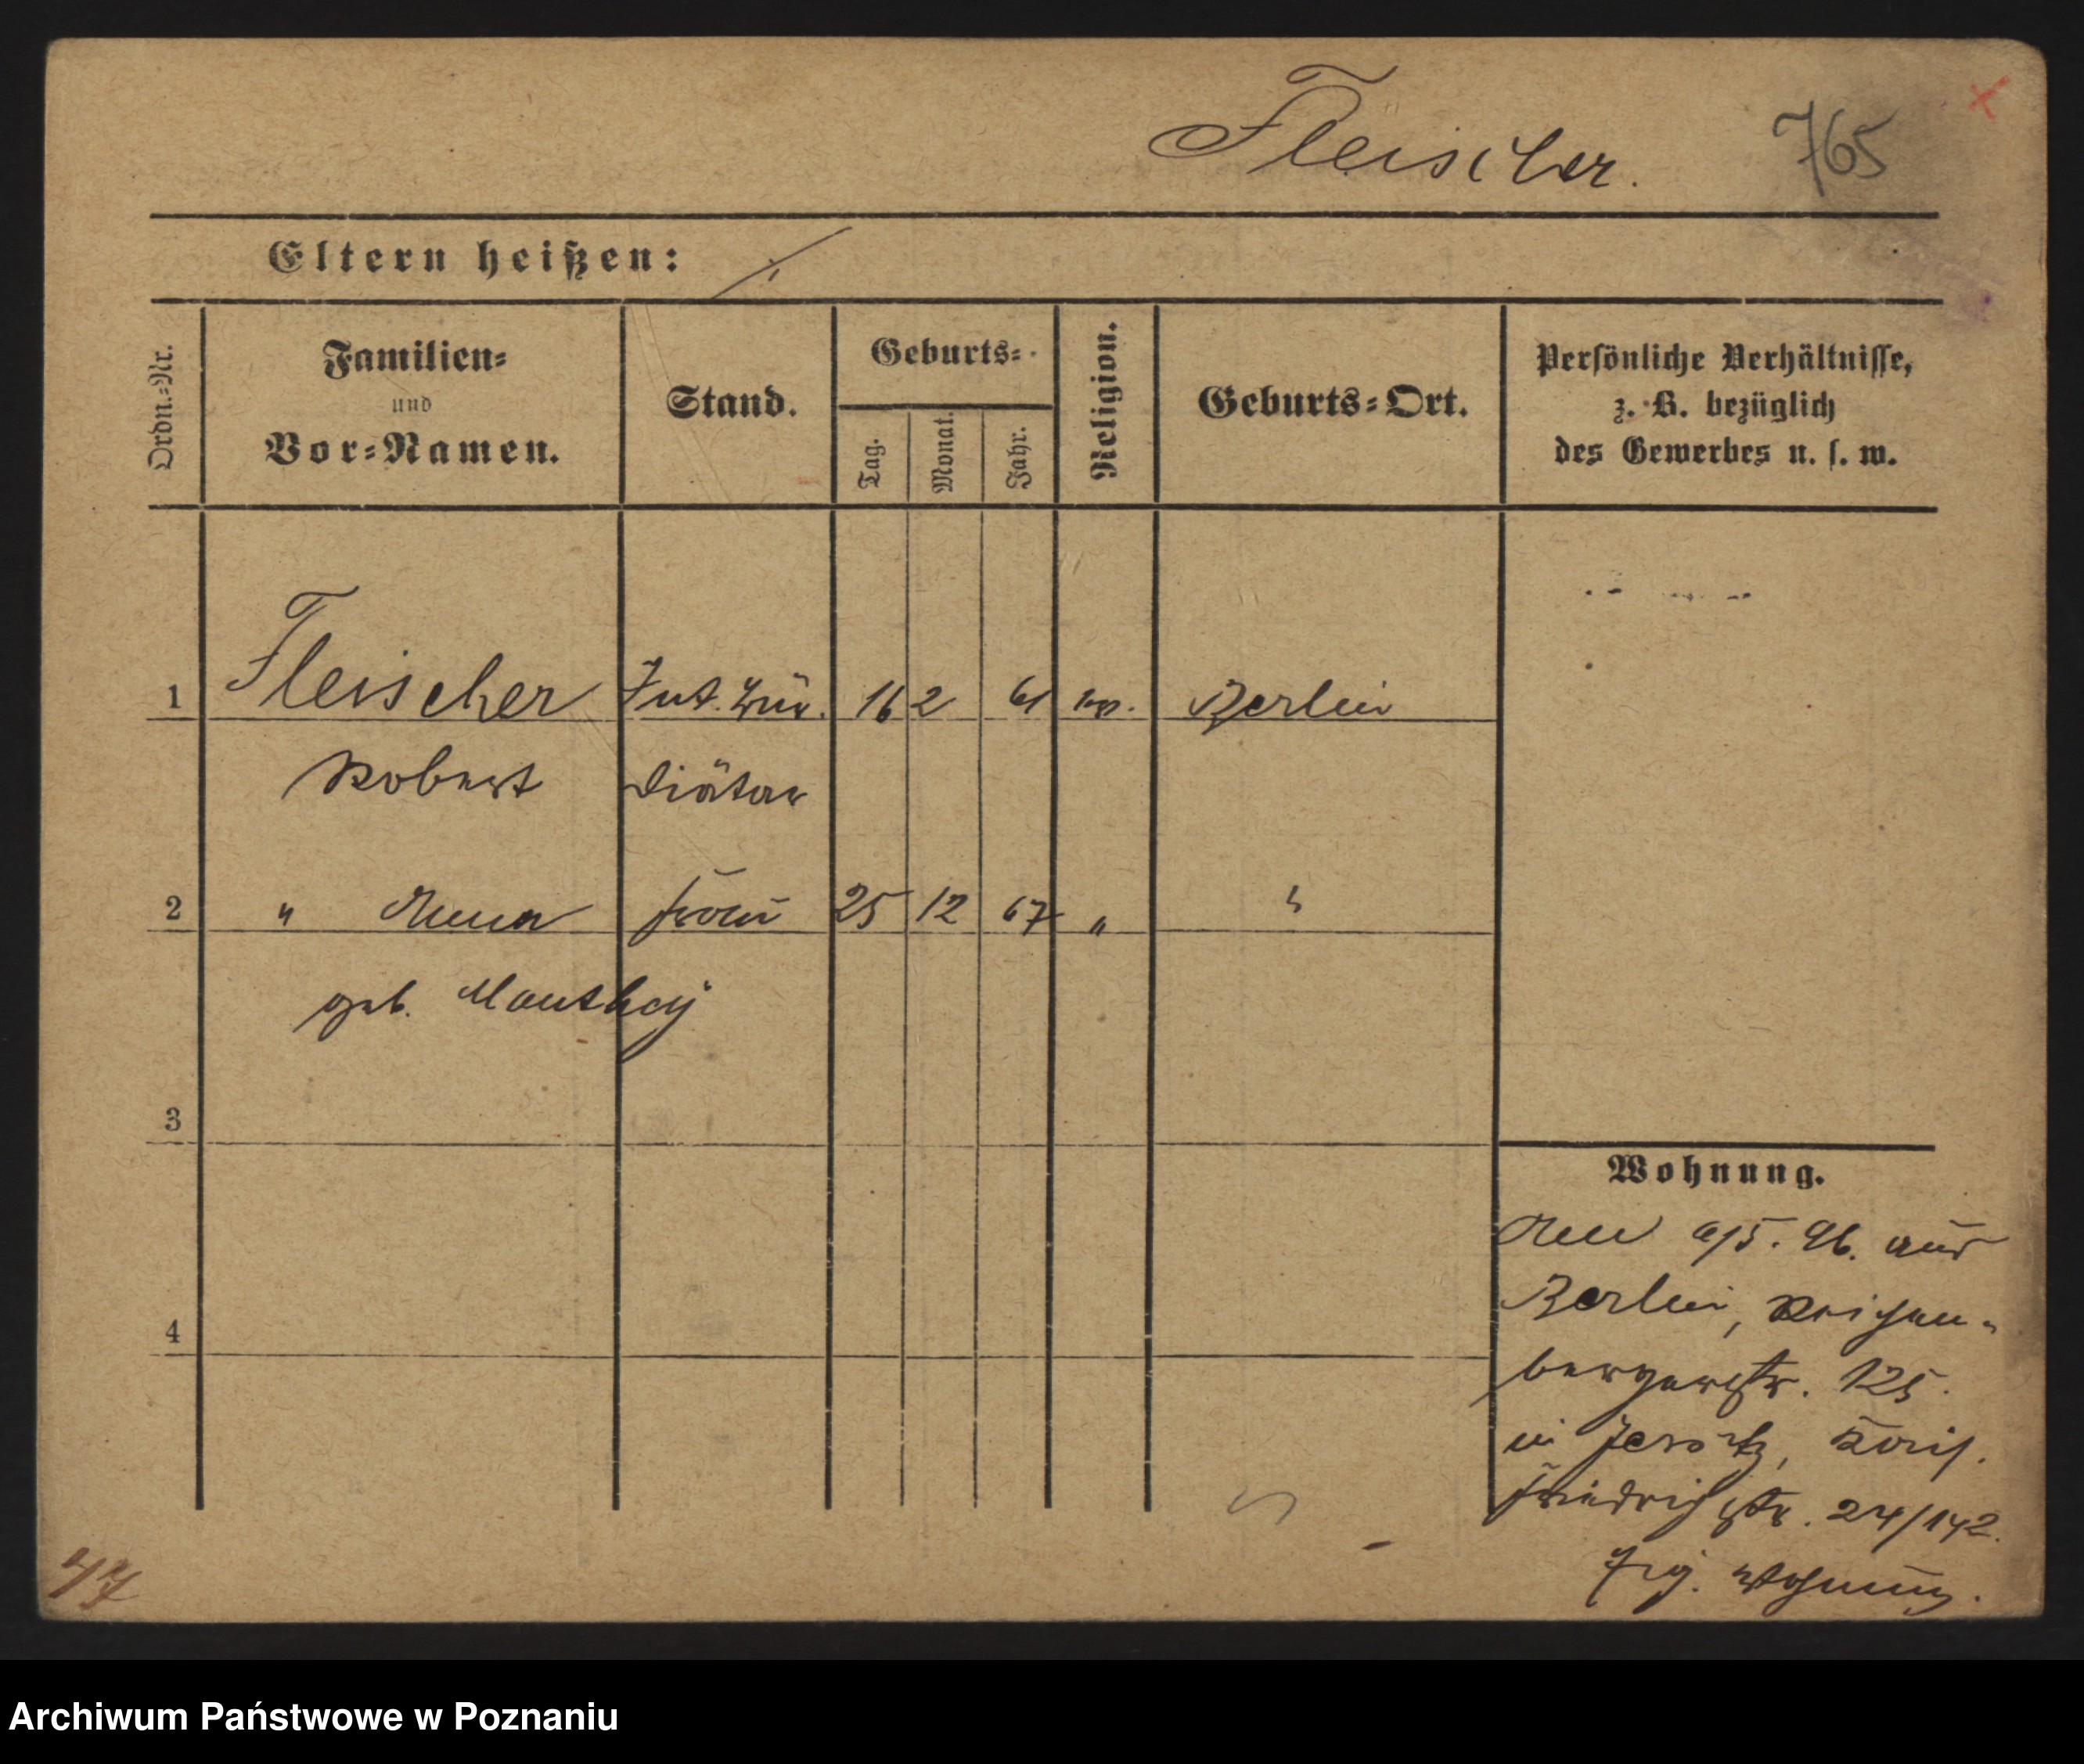 Fleischer.
765
Eltern heißen: ./.
Ordn.=Nr.
Familien=
und
Vor=Namen.
Stand.
Geburts=
Tag.
Monat.
Jahr.
Religion.
Geburts=Ort.
Persönliche Verhältnisse,
z. B. bezüglich
des Gewerbes u. s. w.
1 Fleischer Int. Bür. 16 2 61 ev. Berlin
Robert Diätar
2 " Anna Frau 25 12 67 " "
geb. Manthey
3
4
Wohnung.
96. aus
Berlin, Reichen-
bergerstr. 125.
in Jersitz, Kais.
Friedrichstr. 24/142.
Eig. Wohnung.
Archiwum Państwowe w Poznaniu